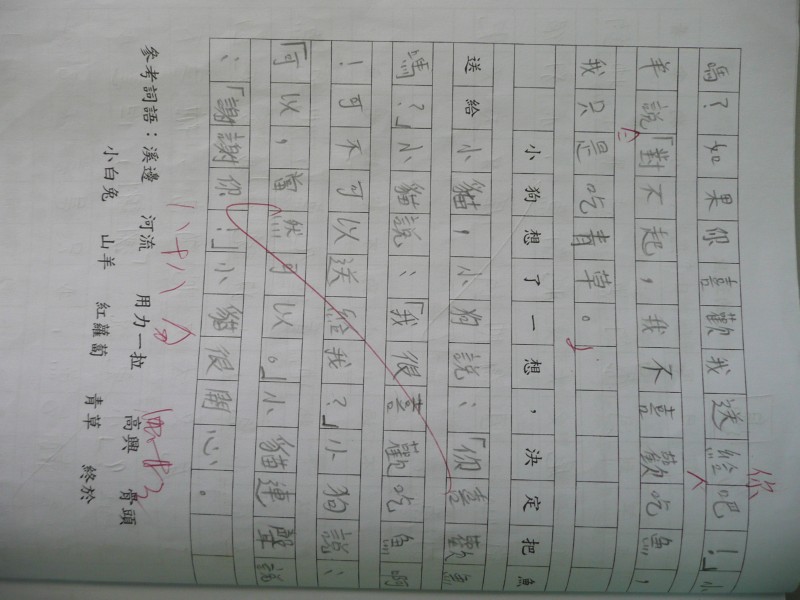 嗎？如果你喜歡我送給吧！」小
你
羊說「對不起，我不喜歡吃魚，
我只是吃青草。
小狗想了一想，決定把魚
送給小貓，小狗說：「你喜歡魚
嗎？」小貓說：「我很喜歡吃魚啊
！可不可以送給我？」小狗說：
「可以，當然可以。」小貓連聲說
：「謝謝你！」小貓很開心。
八十八分
參考詞語：溪邊 河流 用力一拉 高興 骨頭
小白兔 山羊 紅蘿蔔 青草 終於